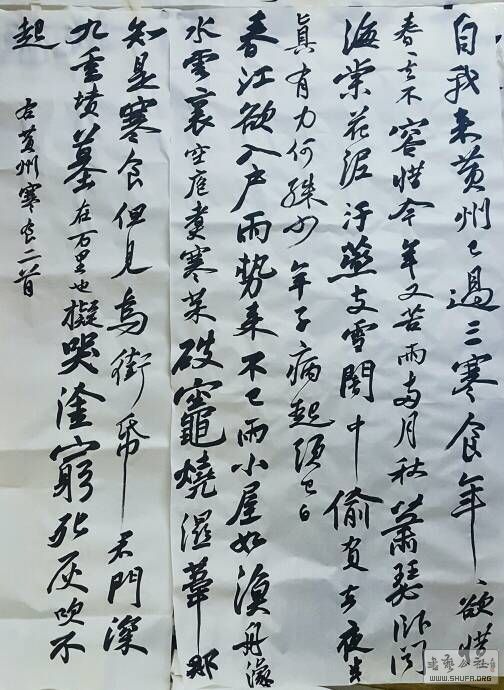 自我来黄州已過三寒食年、欲惜
春、去不容惜今年又苦雨兩月秋蕭瑟卧闻
海棠花泥汙燕支雪闇中偷負去夜半
真有力何殊少年子病起頭已白
春江欲入户雨勢来不已雨小屋如漁舟濛
水雲裏空庖煮寒菜破竈燒濕葦那
知是寒食但見烏銜帋君門深
九重墳墓在万里也擬哭塗窮死灰吹不
起
右黄州寒食二首
書藝公社
WWW.SHUFA.ORG